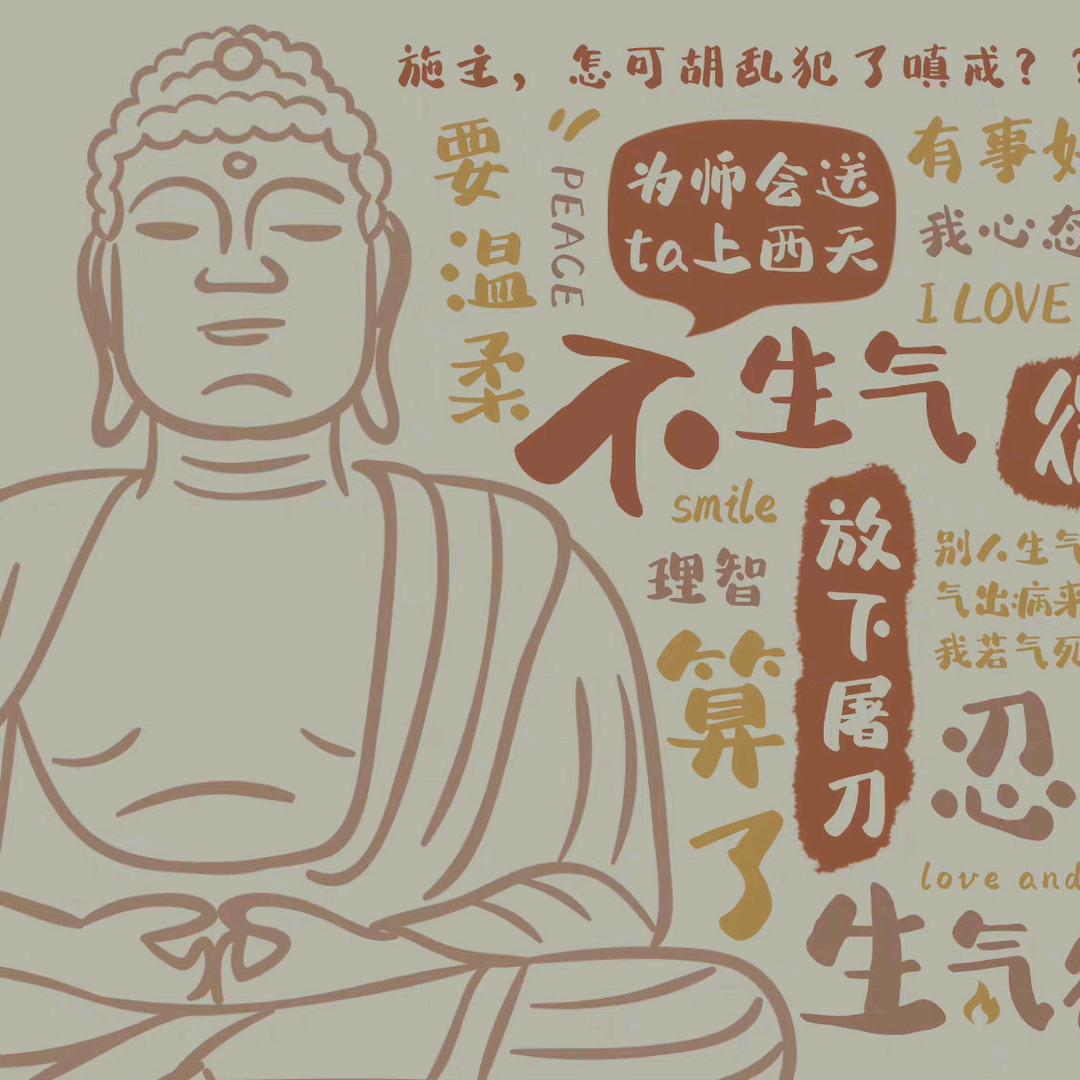 施主，怎可胡乱犯了嗔戒？？
要温柔
PEACE
为师会送
ta上西天
有事好
我心态
I LOVE
不生气
smile
理智
算了
放下屠刀
别人生气
气出病来
我若气死
忍
love and
生气